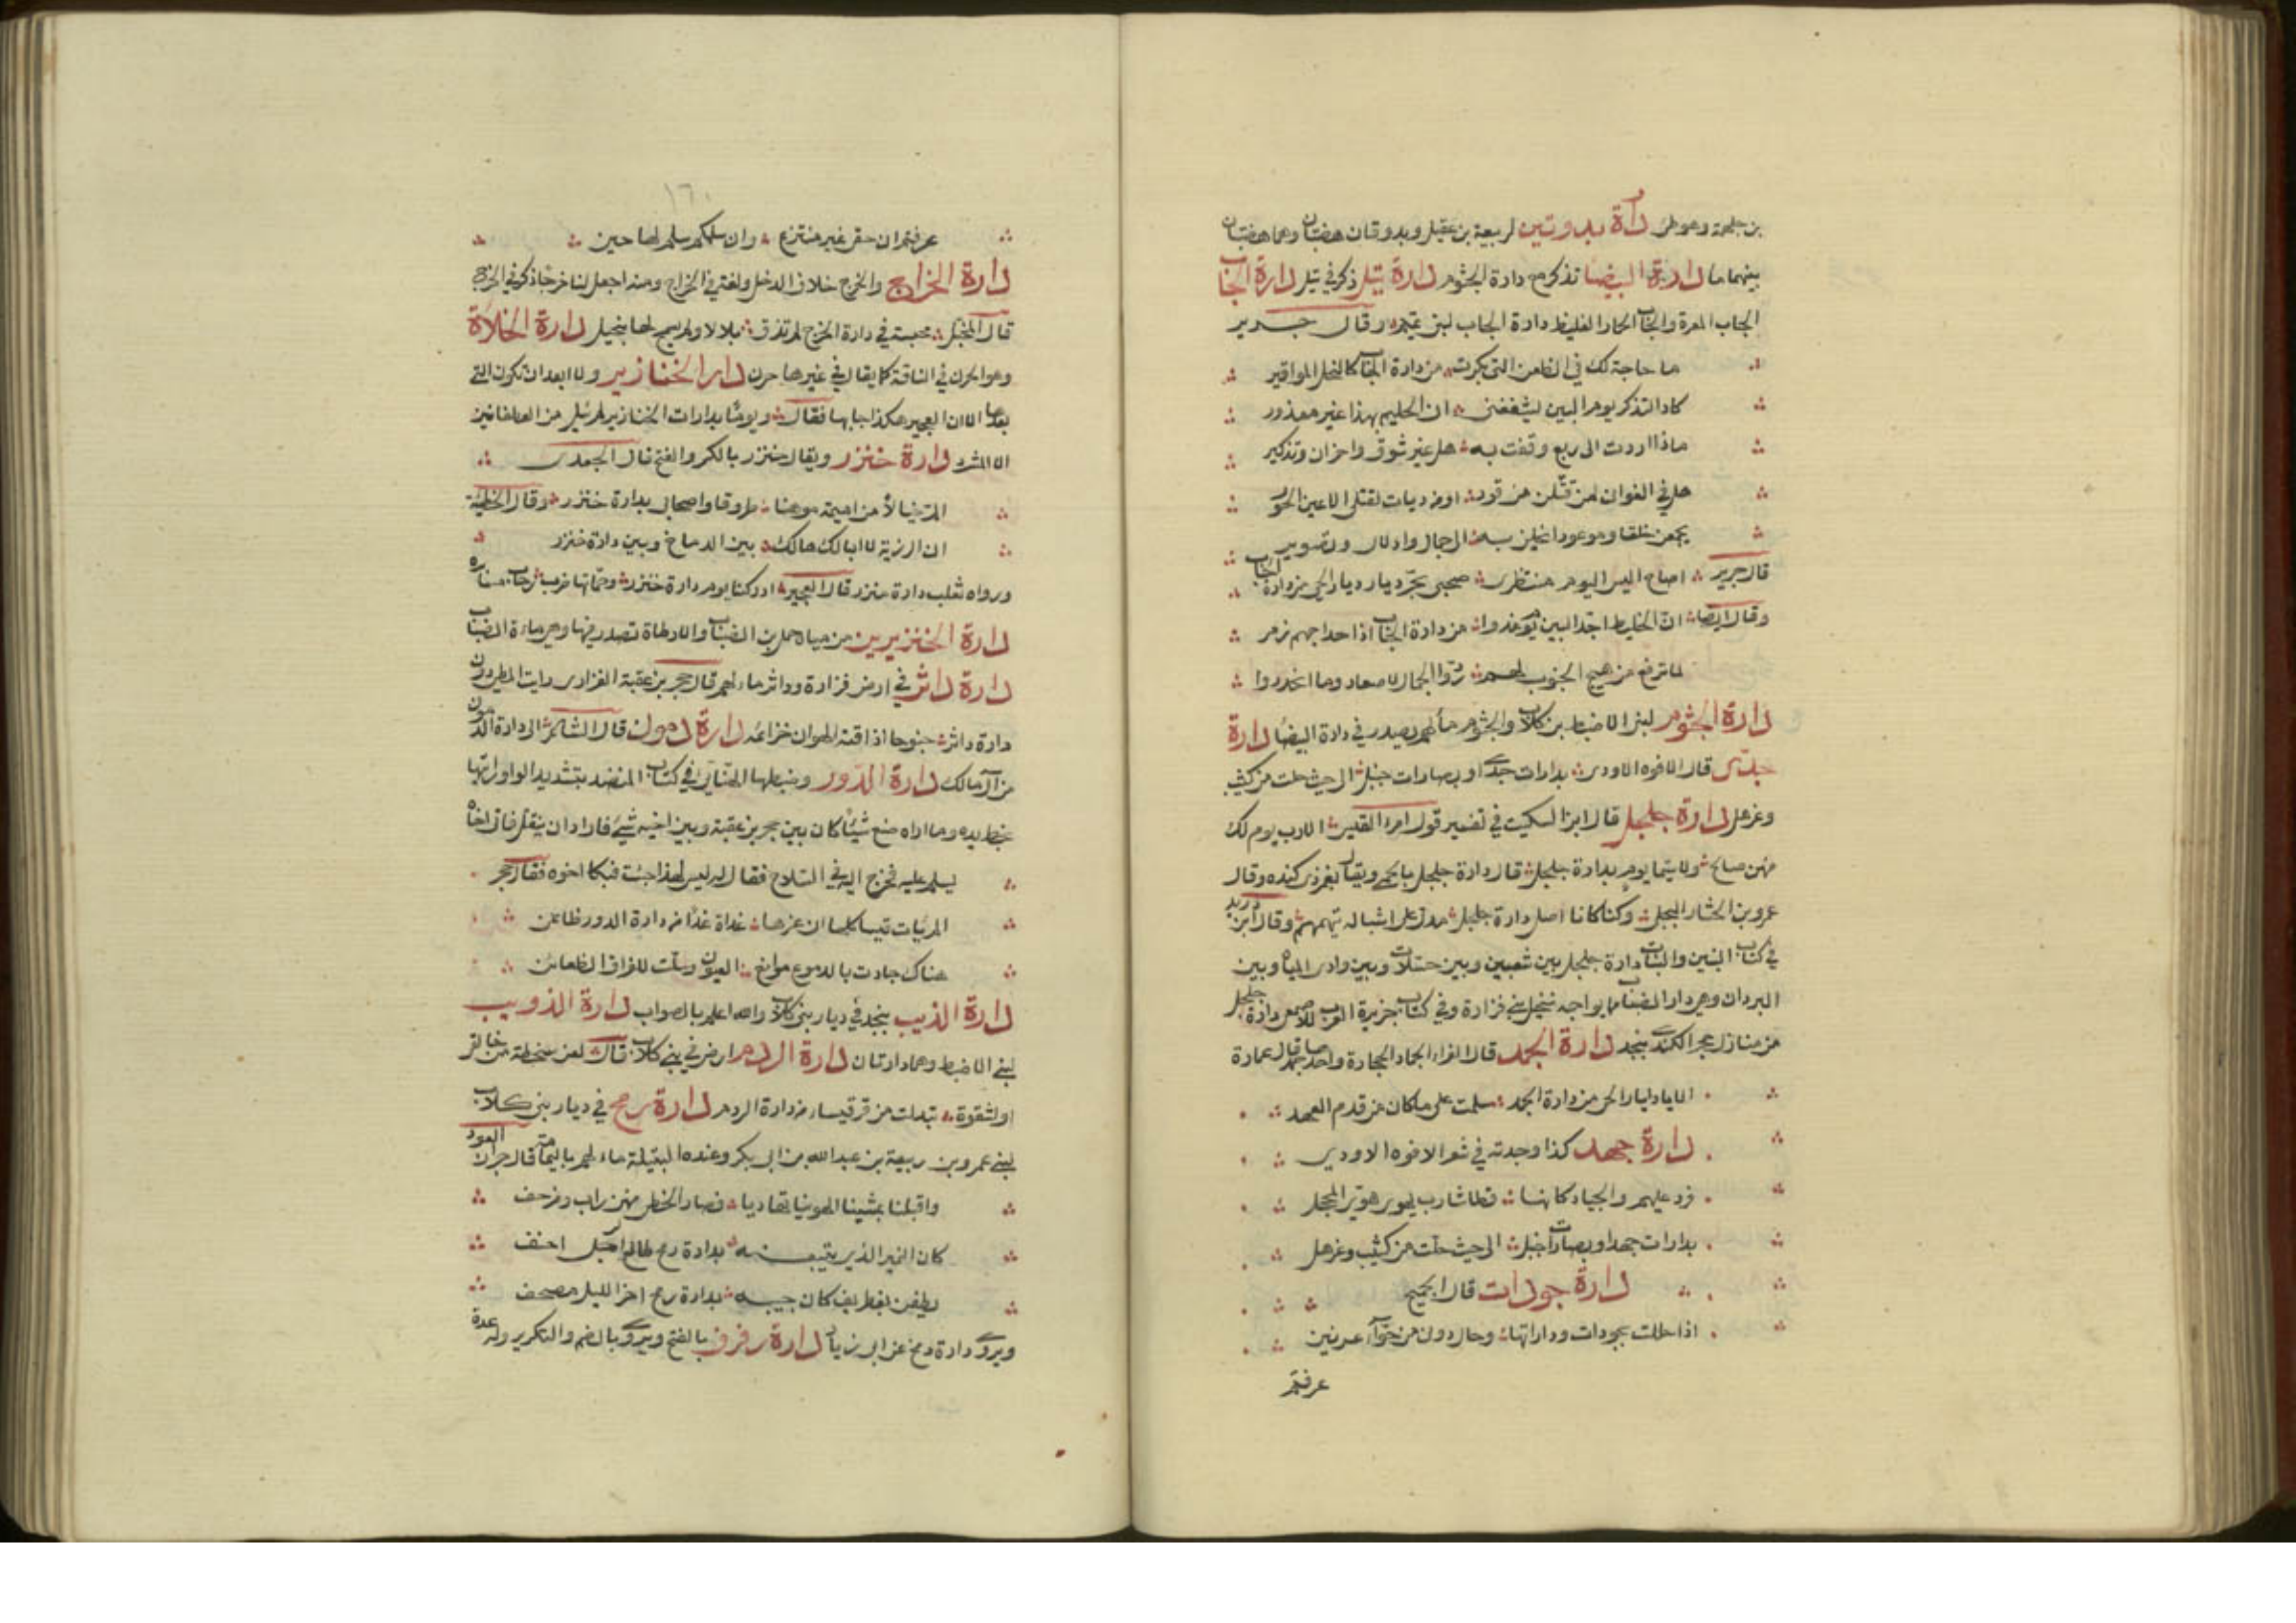 بن جلهمة وهو طى دارة بدوتين لربيعة بن عقيل وبدوتان هضبتان وهما هضبتان
بينهما ما دارة البيضا تذكر مع دارة الجثوم دارة تيل ذكر في تيل دارة الجاب
الجاب المغرة والجاب الحمار الغليظ دارة الجاب لبنى تميم وقال جرير
ما حاجة لك في الظعن التى بكرت من دارة الجاب كالنخل المواقير
كاد التذكر يوم البين يشغفنى ان الحليم بهذا غير معذور
ماذا اردت الى ربع وقفت به هل غير شوق واحزان وتذكير
هل في الغوانى لمن قتلن من قود او من ديات لقتلى الاعين الحور
يجمعن خلقا وموعودا بخلن به الى جمال وادلال وتصوير
قال جرير اصاح اليس اليوم منتظرى صحبى نحى ديار ديار الحى من دارة الجاب
وقال ايضا ان الخليط اجد البين يوم غدوا من دارة الجاب اذا حداجهم زمر
لما ترفع من هيج الجنوب لهم ردوا الجمال لاصعاد وما انحدروا
دارة الجثوم لبنى الاضبط بن كلاب والجثوم ماء لهم يصدر في دارة البيضا دارة
جدى قال الافوه الاودى بدارات جدى او بصارات جنبل الى حيث حلت من كثيب
وعزهل دارة جلجل قال ابن السكيت في تفسير قول امرء القيس الا رب يوم لك
منهن صالح ولا سيما يوم بدارة جلجل قال دارة جلجل بالحمى ويقال بغمر ذى كنده وقال
عمرو بن الخثارم البجلى وكنا كانا اهل دارة جلجل مدل على اشباله يتهمهم وقال ابن دريد
في كتاب البنين والبنات دارة جلجل بين شعبين وبين حسلات وبين وادى المياه وبين
البردان وهى دار الضباب مما يواجه نخيل بنى فزارة وفي كتاب جزيرة العرب للاصمعى دارة جلجل
من منازل حجر الكندى بنجد دارة الجمد قال الفراء الجماد الحجارة واحدها جمد قال عمارة
الا يا ديار الحى من دارة الجمد سلمت على ما كان من قدم العهد
دارة جهد كذا وجدته في شعر الافوه الاودى
فرد عليهم والجياد كانها قطا شارب يهوى هوى المحجل
بدارات جهد او بصارات جنبل الى حيث حلت من كثيب وعزهل
دارة جودات قال الجميح
اذا حللت بجودات وداراتها وحال دونى من حواء عرنين
عرفتم
١٦٠
عرفتم ان حقى غير منتزع وان سلمكم سلم لها حين
دارة الخراج والخرج خلاف الدخل ولغة في الخراج ومنه اجعل لنا خرجا ذكر في الخرج
قال المخبل محبسة في دارة الخرج لم تذق بلالا ولم يسمح لها بنجيل دارة الخلاة
وهو الحرن في الناقة كما يقال في غيرها حرن دار الخنازير ولا ابعد ان تكون التى
بعدها الا ان العجير هكذا جا بها فقال ويوما بدارات الخنازير لم يئل من الغطفانيين
الا المشرد دارة خنزر ويقال خنزر بالكسر والفتح قال الجعدى
الم خيال من اميمة موهنا طروقا واصحابى بدارة خنزر وقال الحطيئة
ان الرزية لا ابا لك هالك بين الدماخ وبين دارة خنزر
ورواه ثعلب دارة منزر قال العجير ادركنا يوم دارة خنزر وحماتها ضرب رحاب مسايره
دارة الخنزيرين من مياه حمل بن الضباب والارطاة تصدر فيها وهى ماءة الضباب
دارة داثر في ارض فزارة وداثر ماء لهم قال حجر بن عقبة الفزارى رايت المطى دون
دارة داثر جنوحا اذاقته الهوان خزائمه دارة دمون قال الشاعر الى دارة الدمون
من آل مالك دارة الدور وضبطها الهنائى في كتاب المنضد بتشديد الواو رايتها
بخطيده وما اراه صنع شيئا كان بين حجر بن عقبة وبين اخيه شئ فاراد ان ينتقل فاتى اخاه
يسلم عليه فخرج اليه في السلاح فقال له ليس لهذا جئت فبكا اخوه فقال حجر
الم يات قيسا كلها ان عزها غداة غد من دارة الدور ظاعن
هناك جادت بالدموع موانع العيون وسلت للفراق الظعائن
دارة الذيب بنجد في ديار بنى كلاب والله اعلم بالصواب دارة الذويب
لبنى الاضبط وهما دارتان دارة الردم ارض في بنى كلاب قال لعن سخطة من خالقى
او لشقوة تبدلت من قرقيسياء من دارة الردم دارة رمح في ديار بنى كلاب
لبنى عمرو بن ربيعة بن عبدالله بن ابى بكر وعنده البتيلة ماء لهم باليمامة قال جران العود
واقبلنا يمشينا الهوينا تهاديا قصار الخطى منهن راب ومزحف
كان النميرى الذى يتبعنه بدارة رمح ظالع الرجل احنف
يطفن بغطريف كان حبيبه بدارة رمح اخر الليل مصحف
ويروى دارة رمح عن ابى زياد دارة رفرف بالفتح ويروى بالضم والتكرير وله عدة